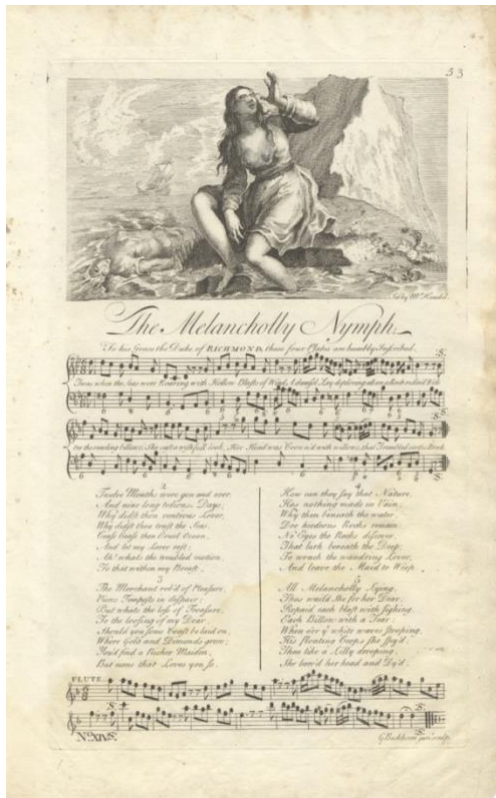 53
Set by Mr. Handel
The Melancholly Nymph
To his Grace the Duke of RICHMOND, these four Plates are humbly Inscribed.
Twas when the Seas were Roaring with Hollow Blasts of Wind, A damsel Lay deploring all on a Rock reclin'd Wide
o'er the rowling billows She cast a wishfull look, Her Head was Crown'd with willows that Trembled o'er the Brook
2
Twelve Months were gon and over
And nine long tedious Days;
Why didst thou venturous Lover,
Why didst thou trust the Seas;
Cease Cease thou Cruel Ocean,
And let my Lover rest;
Ah! whats the troubled motion
To that within my Breast
3
The Merchant rob'd of Pleasure,
Views Tempests in dispair;
But whats the loss of Treasure,
To the loosing of my Dear
Should you some Coast be laid on,
Where Gold and Dimonds grow;
You'd find a Richer Maiden,
But none that Loves you so.
4
How can they Say that Nature,
Has nothing made in Vain;
Why then beneath the water
Doe hideous Rocks remain;
No Eyes the Rocks discover,
That lurk beneath the Deep;
To wrack the wandering Lover,
And leave the Maid to Weep
5
All Melancholly Lying,
Thus wail'd She for her Dear,
Repaid each blast with sighing,
Each Billow with a Tear;
When o'er ye white waves stooping,
His floating Corps she spy'd;
Then like a Lilly drooping,
She bow'd her head and Dy'd.
FLUTE
No. XIV.
G. Bickham junr. sculp.